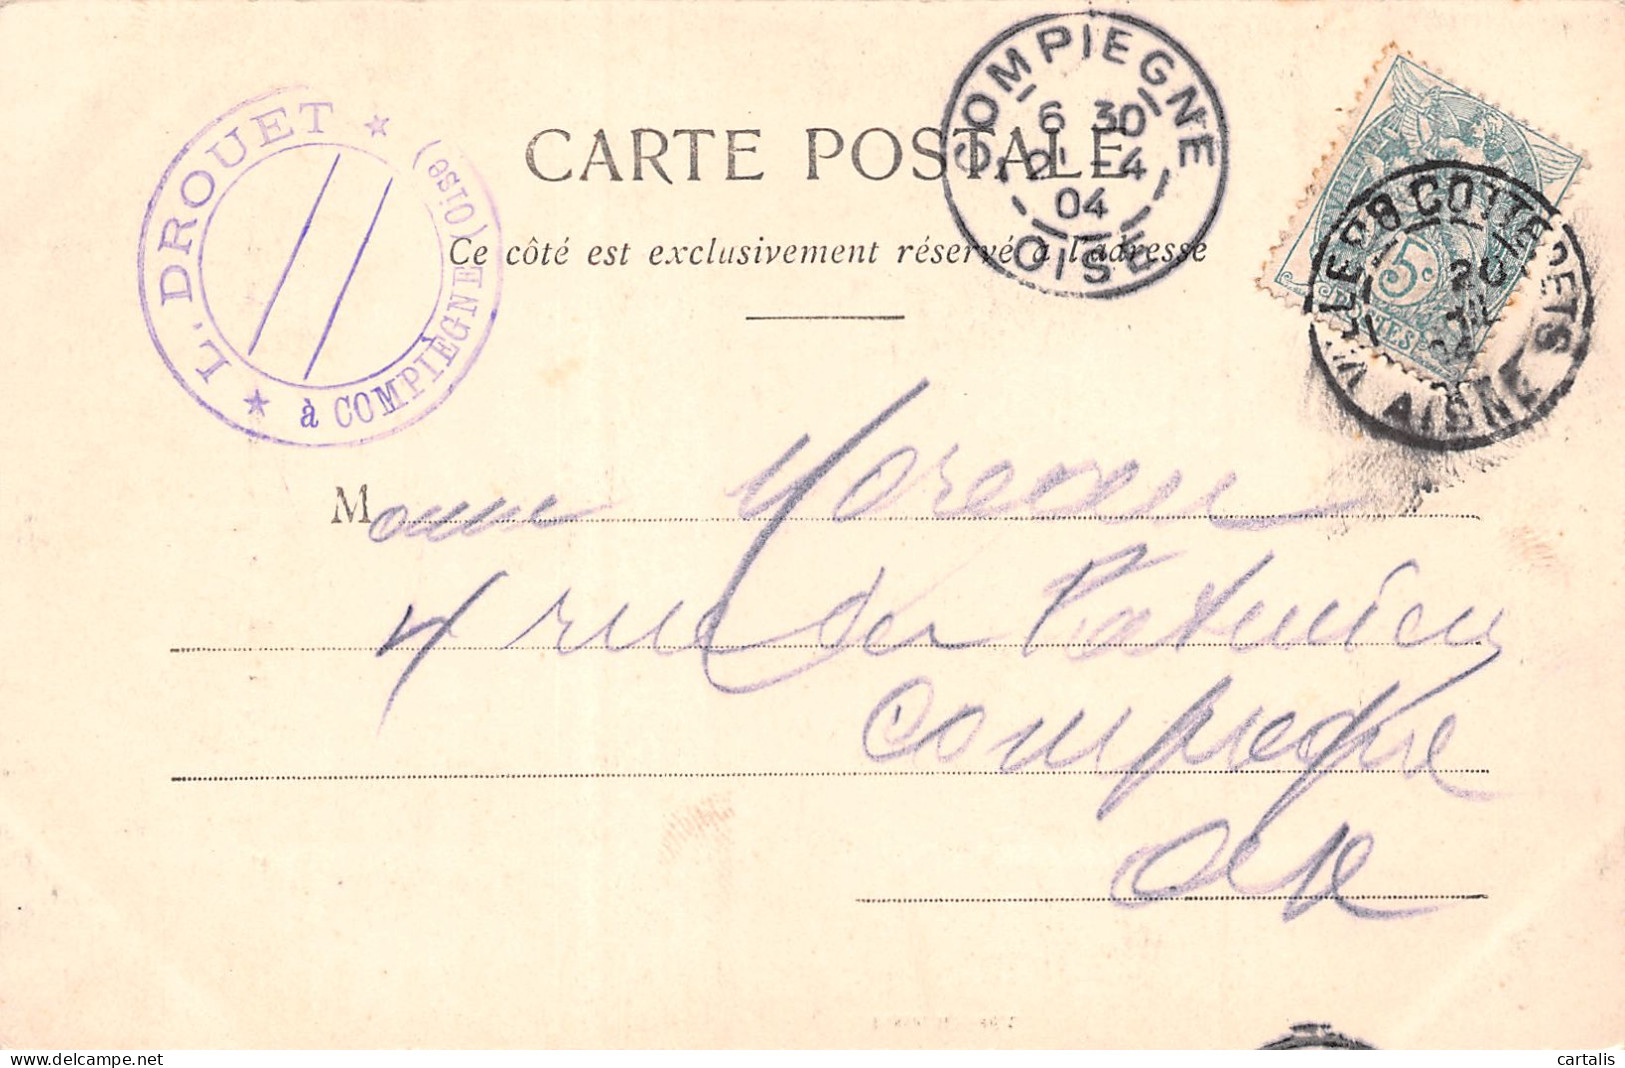 L. DROUET
à COMPIÈGNE (Oise)
CARTE POSTALE
Ce côté est exclusivement réservé à l'adresse
COMPIEGNE
6 30
21 - 4
04
OISE
5c
POSTES
VILLERS COTTERETS
20
04
AISNE
M
Moreau
4 rue des
Compiegne
Oise
cartalis